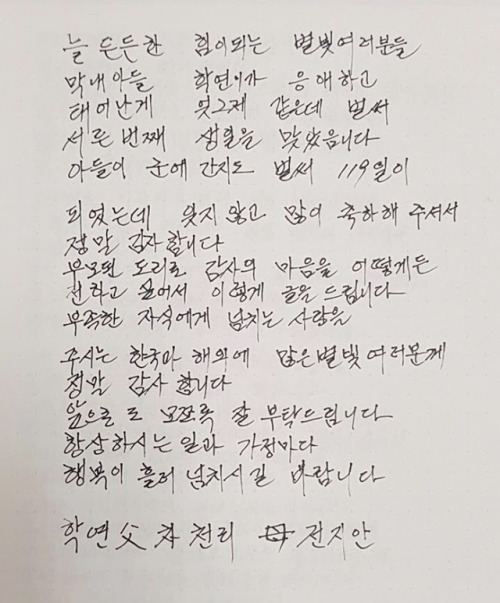 늘 든든한 힘이되는 별빛여러분들
막내아들 학연이가 응애하고
태어난게 엊그제 같은데 벌써
서른번째 생일을 맞았읍니다
아들이 군에 간지도 벌써 119일이
되였는데 잊지않고 많이 축하해 주셔서
정말 감사합니다
부모된 도리로 감사의 마음을 어떻게든
전하고 싶어서 이렇게 글을 드립니다
부족한 자식에게 넘치는 사랑을
주시는 한국과 해외에 많은별빛여러분께
정말 감사합니다
앞으로도 모쪼록 잘 부탁드립니다
항상하시는일과 가정마다
행복이 흘러 넘치시길 바랍니다
학연父 차천리 母 전지안